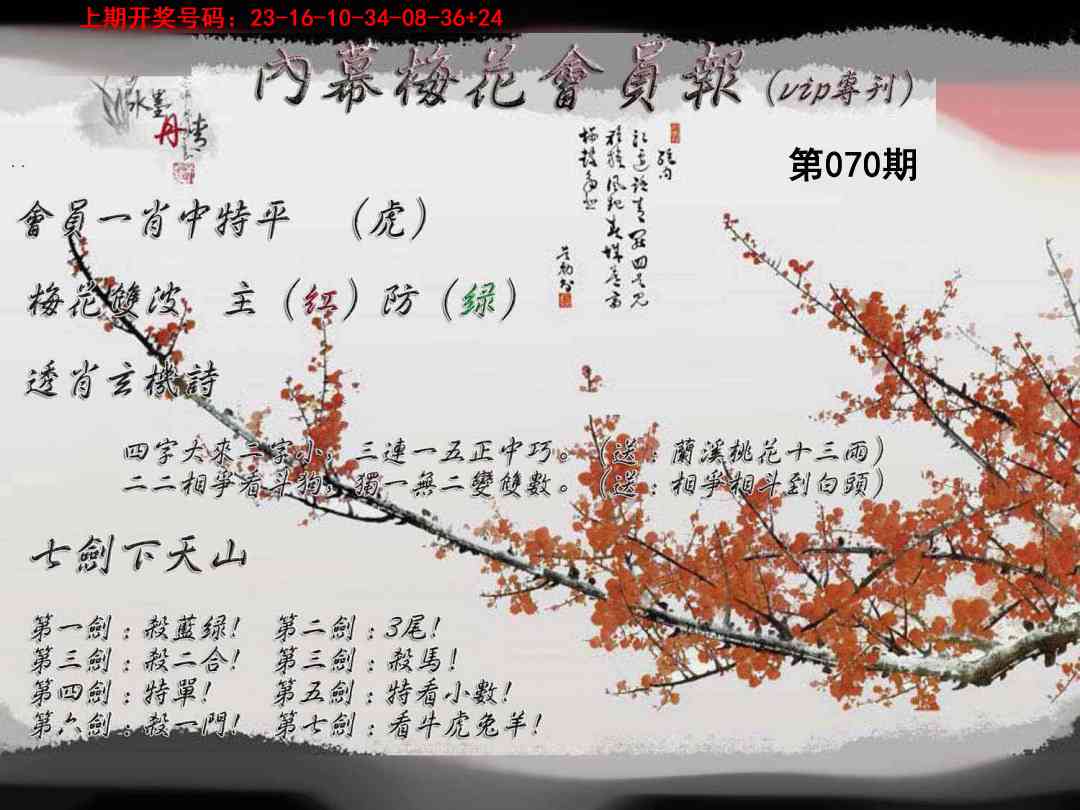 上期开奖号码：23-16-10-34-08-36+24
內幕梅花會員報（vip專刊）
水墨
丹青
第070期
會員一肖中特平　（虎）
梅花雙波　主（红）防（绿）
透肖玄機詩
四字大來二字小，三連一五正中巧。（送：蘭溪桃花十三雨）
二二相爭看斗狗，獨一無二變雙數。（送：相爭相斗到白頭）
七劍下天山
第一劍：殺藍绿！　第二劍：3尾！
第三劍：殺二合！　第三劍：殺馬！
第四劍：特單！　第五劍：特看小數！
第六劍：殺一門！　第七劍：看牛虎兔羊！